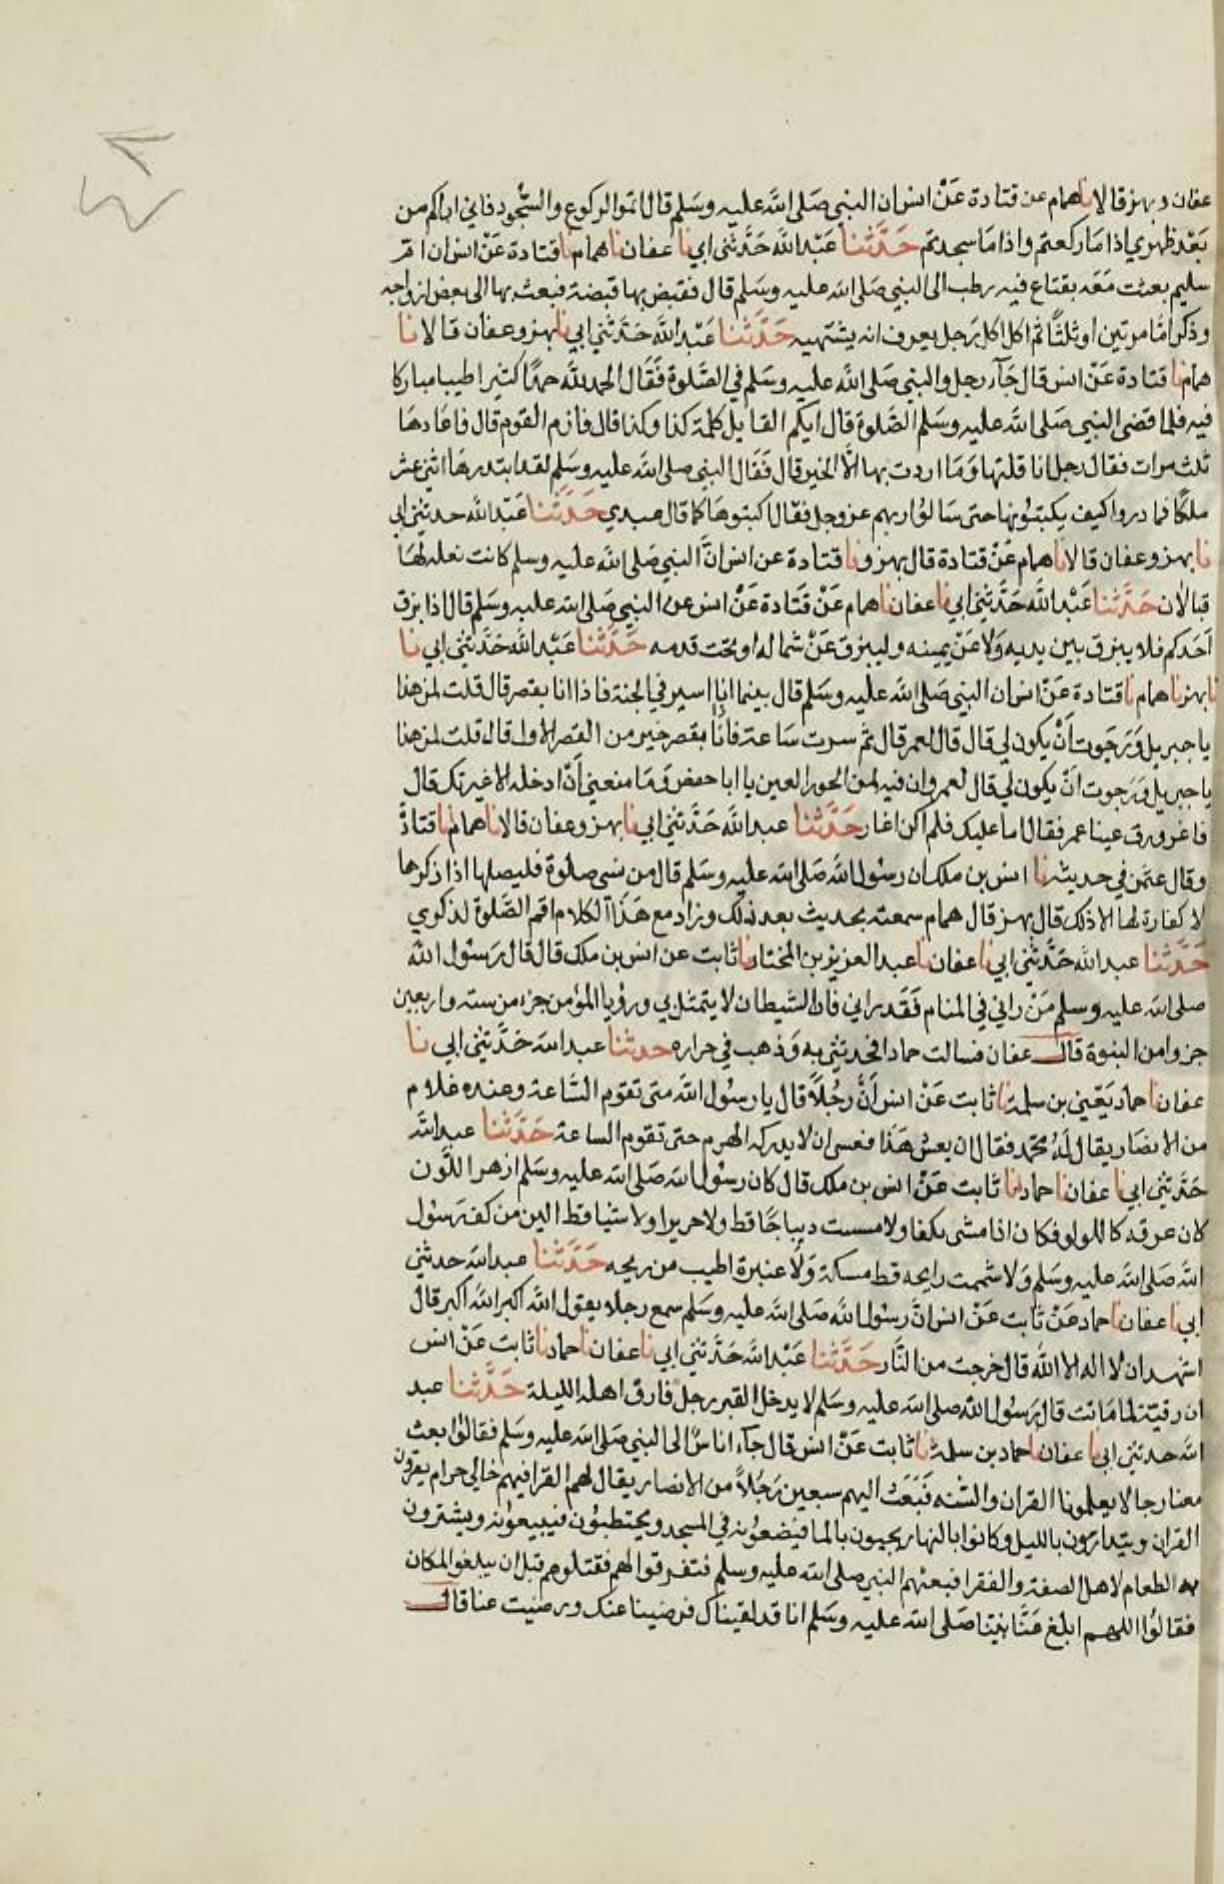 عفان وبهز قالا نا همام عن قتادة عَنْ انس ان النبي صَلى اللهَ عليه وسَلم قال اتموا الركوع والسُّجود فاني اراكم من
بَعْد ظهري اذا مَا ركعتم واذا مَا سجدتم حَدَّثنا عَبْد الله حَدَّثني ابي نا عفان نا همام نا قتادة عَنْ انس ان ام
سليم بعثت مَعَه بقناع فيه رطب الى النبي صَلى الله عليه وسَلم قال فقبض بها قبضة فبعث بها الى بعض ازواجه
وذكر امّا مرتين او ثلثًا ثم اكل اكل رَجل يعرف انه يشتهيه حَدَّثنا عَبْد الله حَدَّثني ابي نا بهز وعفان قالا نا
همام نا قتادة عَنْ انس قال جَآء رجل والنبي صَلى الله عليه وسَلم في الصَّلوة فَقَال الحمد لله حمدًا كثيرا طيبا مباركا
فيه فلما قضى النبي صَلى الله عليه وسَلم الصَّلوة قال ايكم القايل كلمة كذا وكذا قال فازم القوم قال فاعادها
ثلث مرات فقال رجل انا قلتها وَمَا اردت بها الَّا الخير قال فَقَال النبي صلى الله عليه وسَلم لقد ابتدرهَا اثنى عشر
ملكًا فما دروا كيف يكبتوُنها حتى سَالوُا ربهم عز وجل فقال اكتبوهَا كما قال عبدي حَدَّثنا عَبْد الله حدثني ابي
نا بهز وعفان قالا نا همام عَنْ قتادة قال بهز ونا قتادة عن انس انَّ النبي صَلى الله عليه وسلم كانت نعله لهَا
قبالان حَدَّثنا عَبْد الله حَدَّثني ابي نا عفان نا همام عَنْ قتَادة عَنْ انس عن النبي صَلى الله عليه وسَلم قال اذا بزق
اَحَدكم فلا يبزق بين يديه وَلا عَنْ يمينه وليبزق عَنْ شماله او تحت قدمه حَدَّثنا عَبْد الله حَدَّثني ابي نا
نا بهز نا همام نا قتادة عَنْ انس ان النبي صَلى الله عليه وسَلم قال بينما انا اسير في الجنة فاذا انا بقصر قال قلت لمن هذا
يا جبريل وَرَجَوت اَنْ يكون لي قال قال لعمر قال ثم سرت سَاعة فانا بقصر خير من القصر الاول قال قلت لمن هذا
يا جبريل وَرَجوت اَنّ يكون لي قال لعمر وان فيه لمن الحور العين يا ابا حفص وَمَا منعني اَنْ ادخله الا غيرتك قال
فاغرورق عينا عمر فقال اما عليك فلم اكن اغار حَدَّثنا عبد الله حَدَّثني ابي نا بهز وعفان قالا نا همام نا قتادة
وقال عفن في حديثه نا انس بن ملك ان رسُول الله صَلى الله عليه وسَلم قال من نسي صَلوة فليصلها اذا ذكرها
لا كفارة لها الا ذلك قال بهز قال همام سمعته بحديث بعد ذلك وزاد مع هَذَا الكلام اقم الصَّلوة لذكري
حَدَّثنا عبد الله حَدَّثني ابي نا عفان نا عبد العزيز بن المختار نا ثابت عن انس بن ملك قال قال رَسُول الله
صلى الله عليه وسلم مَنْ راني في المنام فَقَد راني فان الشيطان لا يتمثل بي ورؤيا المؤمن جزء من ستة واربعين
جزوا من النبوة قال عفان فسالت حمادا فحدثني به وَذهب في حراره حدثنا عبد الله حَدَّثني ابي نا
عفان نا حماد يَعْني بن سلمة نا ثابت عَنْ انس اَنَّ رَجُلاً قال يا رسُول الله متى تقوم السَّاعة وعنده غلام
من الانصَار يقال لهُ محَمد فقال ان يعش هَذَا فعسى ان لا يدركه الهرم حتى تقوم الساعة حَدَّثنا عبد الله
حَدَّثني ابي نا عفان نا حماد نا ثابت عَنْ انس بن ملك قال كان رسُول الله صَلى الله عليه وسَلم ازهر اللَّون
كان عرقه كاللولو فكان اذا مشى تكفا ولا مسست ديباجًا قط ولا حريرا ولا شيا قط الين من كف رَسُول
الله صَلى الله عليه وسَلم وَلا شممت رايحه قط مسكة وَلا عنبرة اطيب من ريحه حَدَّثنا عبد الله حدثني
ابي نا عفان نا حماد عَنْ ثابت عَنْ انس انَّ رسُول الله صَلى الله عليه وسَلم سمع رجلا يقول الله اكبر الله اكبر قال
اشهد ان لا اله الا الله قال خرجت من النَّار حَدَّثنا عَبْد الله حَدَّثني ابي نا عفان نا حماد نا ثابت عَنْ انس
ان رقية لما مَاتت قال رَسُول الله صلى الله عليه وسَلم لا يدخل القبر رجل فارق اهله الليلة حَدَّثنا عبد
الله حدثني ابي نا عفان نا حماد بن سلمة نا ثابت عَنْ انس قال جآء اناس الى النبي صَلى الله عليه وسَلم فقالوُا ابعث
معنا رجالا يعلمونا القران والسُّنة فَبَعَث اليهم سبعين رَجُلاً من الانصار يقال لهم القرا فيهم خالي حرام يقرون
القران ويتدارسون بالليل وكانوا بالنهار يجيون بالما فيَضعوُنه في المسجد ويحتطبوُن فيبيعوُنه ويشترون
به الطعام لاهل الصفة والفقرا فبعثهم النبي صلى الله عليه وسلم فتفرقوا لهم فقتلوهم قبل ان يبلغوا المكان
فقالوُا اللهم ابلغ عَنَّا نبينا صَلى الله عليه وسَلم انا قد لقيناك فرضينا عنك ورضيت عنا قال